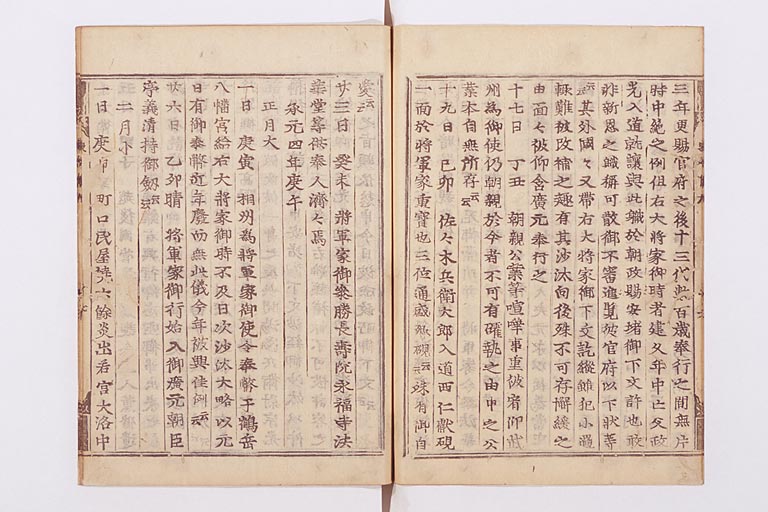 三年更賜官府之後十三代数百歳奉行之間無片
時中絶之例但右大将家御時者建久年中亡父政
光入道就讓與此職於朝政賜安堵御下文許也敢
非新恩之職稱可散御不審進覧彼官府以下狀等
云云其外國々又帯右大将家御下文訖縦雖犯小過
輙難被改補之趣有其沙汰向後殊不可存懈緩之
由面々被仰含廣元奉行之
十七日 丁丑 朝親公業等喧嘩事重被宥仰武
州為御使仍朝親於今者不可有確執之由申之公
業本自無所存云云
十九日晴 己卯 佐々木兵衛太郎入道西仁獻硯
一面於将軍家重寶也三位通盛卿硯云云殊有御自
愛云云
廿三日 癸未 将軍家御參勝長壽院永福寺法
華堂等供奉人濟々焉
承元四年庚午
正月大
一日 庚寅 相州為将軍家御使令奉幣于鶴岳
八幡宮給右大将家御時不及日次沙汰大略以元
日有御奉幣近年廢而無此儀今年被興佳例云云
廿六日 乙卯晴 将軍家御行始入御廣元朝臣
亭義清持御劔云云
二月小
一日 庚申 町口民屋焼亡餘炎出若宮大路中